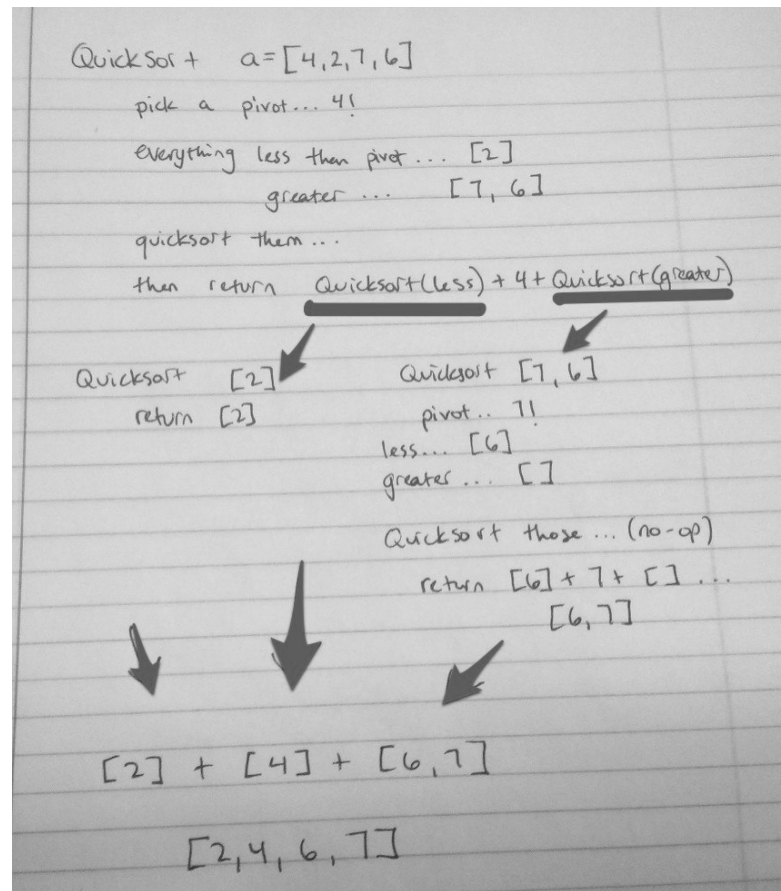 Quicksort a=[4,2,7,6]
pick a pivot... 4!
everything less then pivot... [2]
greater ... [7, 6]
quicksort them...
then return Quicksort(less) + 4 + Quicksort(greater)
Quicksort [2]
return [2]
Quicksort [7,6]
pivot.. 7!
less... [6]
greater... []
Quicksort those... (no-op)
return [6] + 7 + [] ...
[6,7]
[2] + [4] + [6,7]
[2,4,6,7]